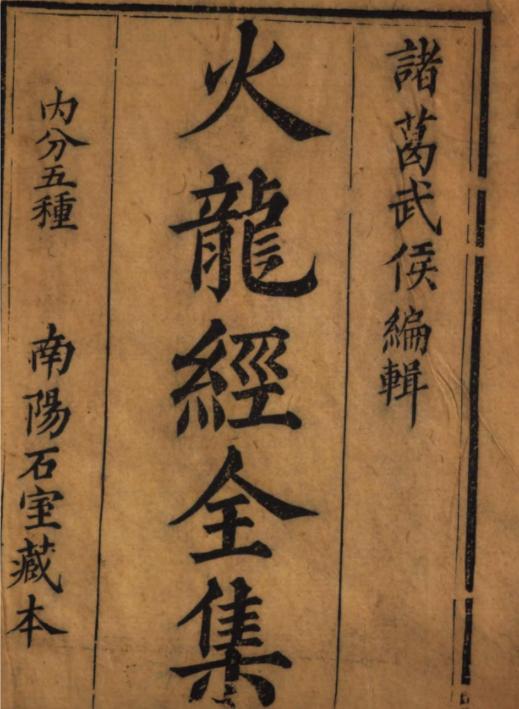 諸葛武侯編輯
火龍經全集
內分五種
南陽石室藏本